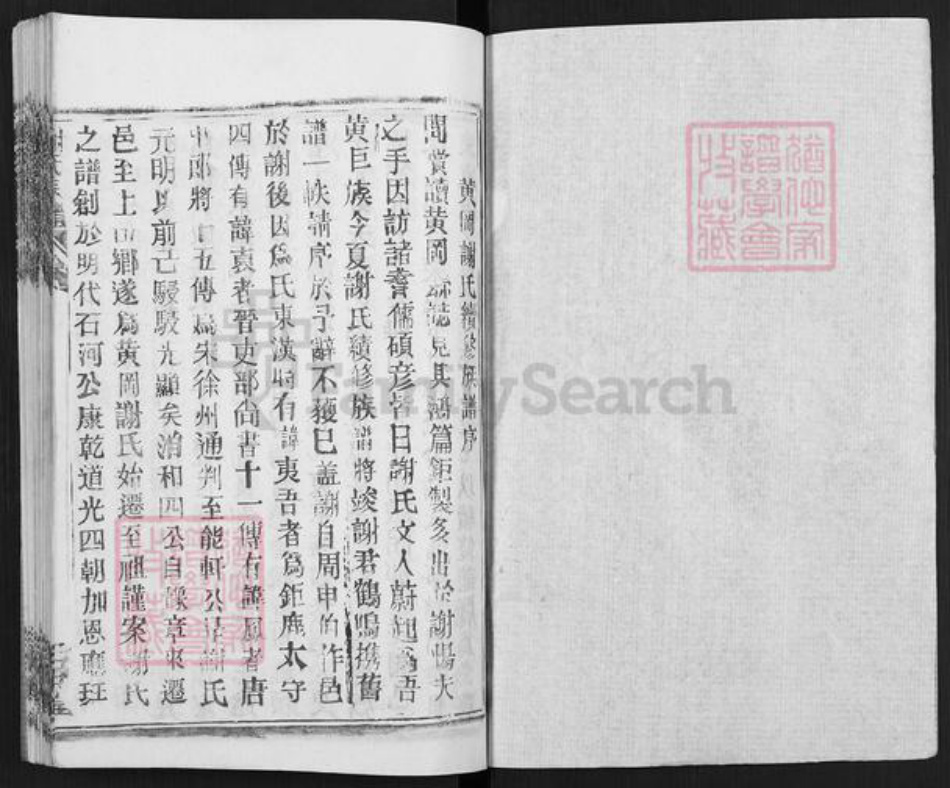 黄岡謝氏續修族譜序
間嘗讀黄岡 誌見其鴻篇鉅製多出於謝 夫
之手因訪諸耆儒碩彦皆曰謝氏文人蔚起爲吾
黄巨族今夏謝氏續修族譜將竣謝君鶴鳴携舊
譜一帙請序於予辭不獲已蓋謝自周申伯作邑
於謝後因爲氏東漢時有諱夷吾者爲鉅鹿太守
四傳有諱袁者晉吏部尙書十一傳有諱 者唐
中郎將 五傳爲宋徐州通判至能軒公 謝氏
元明以前已駸駸光顯矣洎和四公自豫章來遷
邑至上 鄉遂爲黄岡謝氏始遷至祖謹案謝氏
之譜創於明代石河公康乾道光四朝加恩 
猶他家
譜學會
收藏
FamilySearch